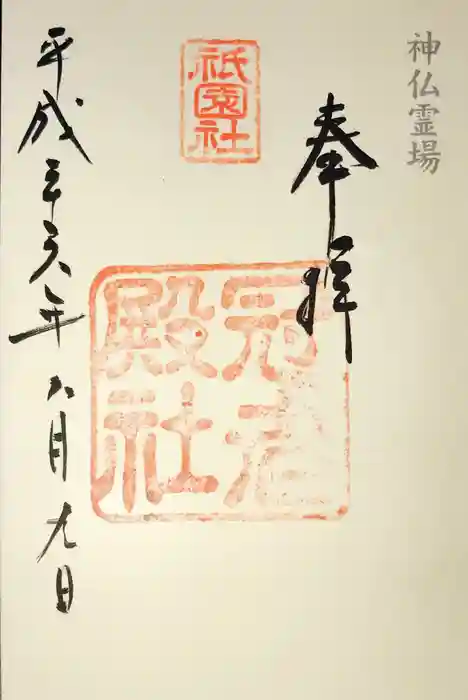 神仏霊場
奉拝
祇園社
冠者殿社
平成二六年八月九日